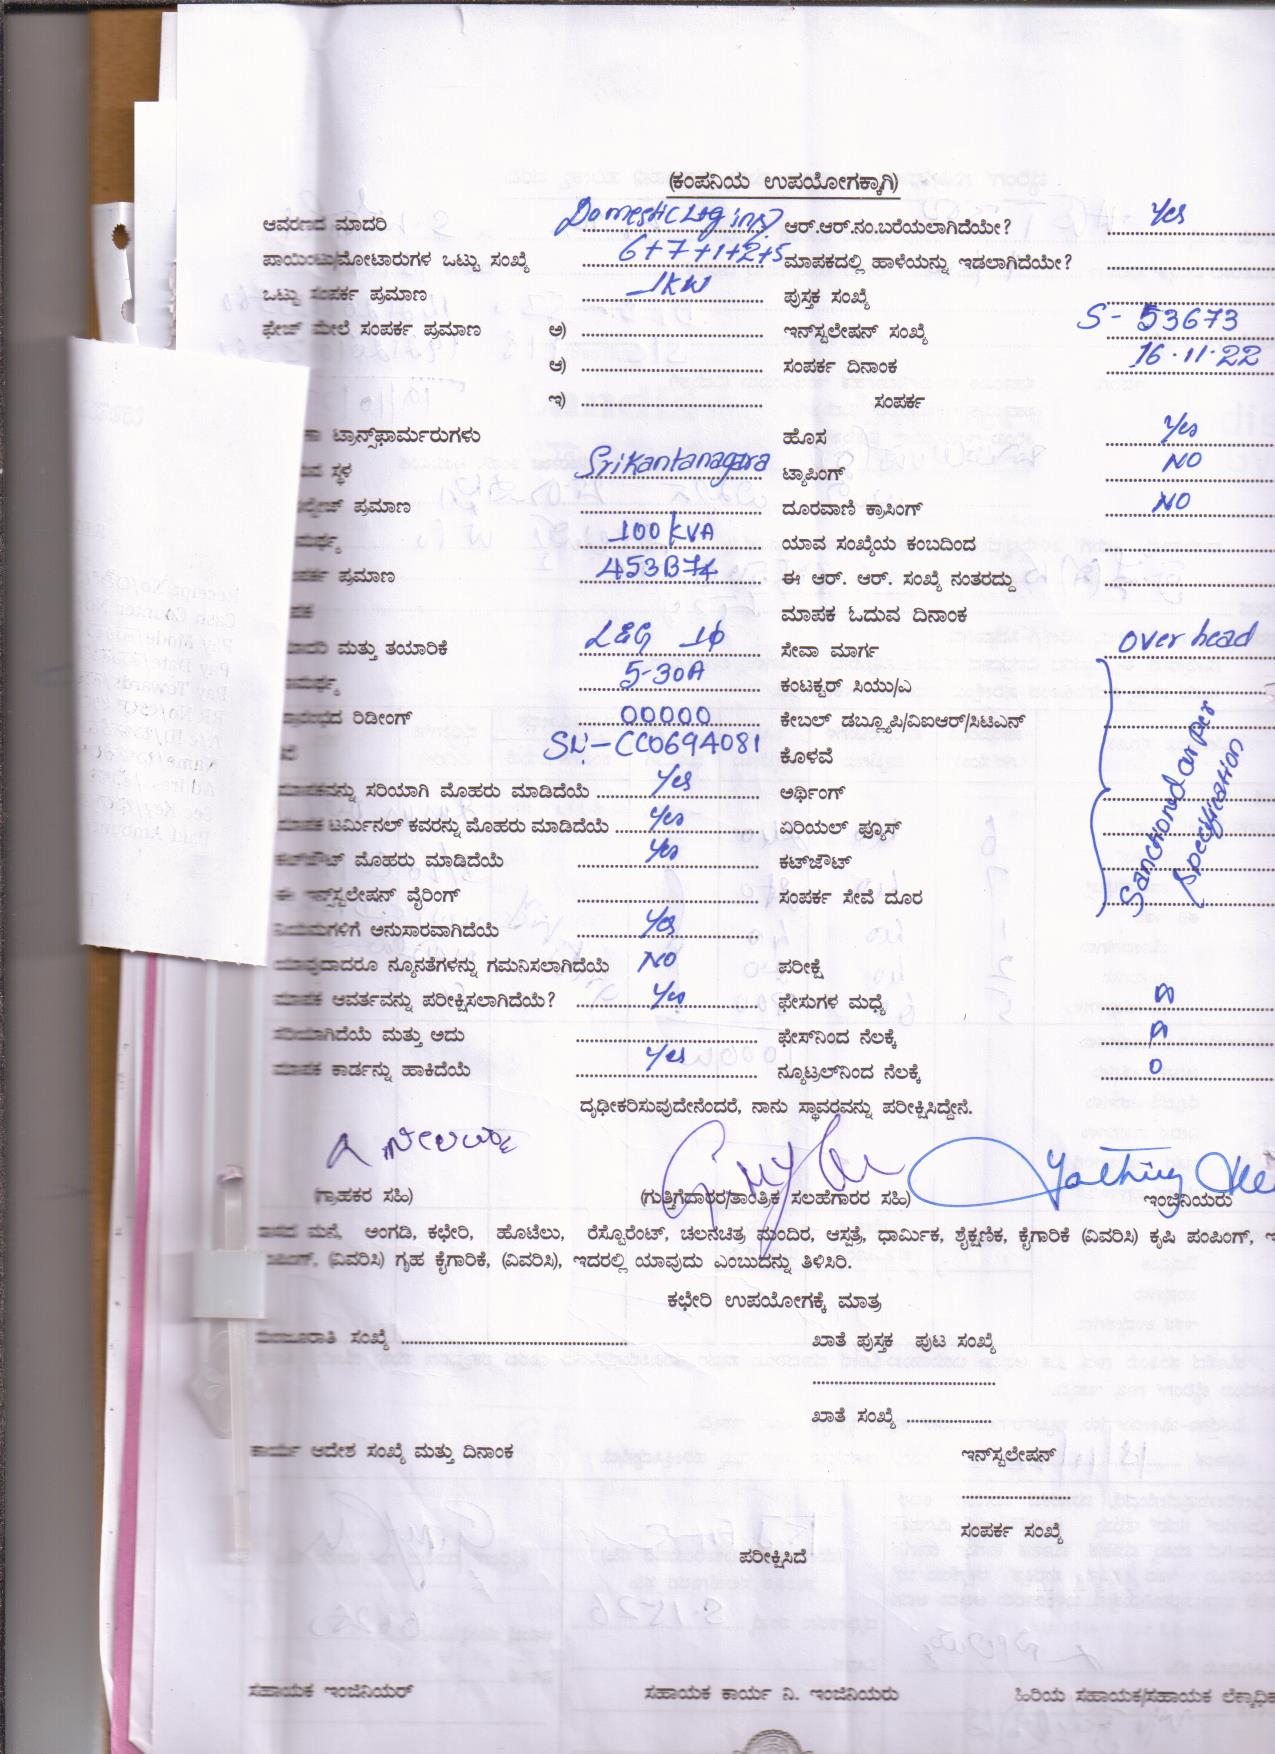 (ಕಂಪನಿಯ ಉಪಯೋಗಕ್ಕಾಗಿ)
ಆವರಣದ ಮಾದರಿ Domestic Ltging ಆರ್.ಆರ್.ನಂ.ಬರೆಯಲಾಗಿದೆಯೇ? Yes
ಪಾಯಿಂಟು/ಮೋಟಾರುಗಳ ಒಟ್ಟು ಸಂಖ್ಯೆ 6+7+1+2+5 ಮಾಪಕದಲ್ಲಿ ಹಾಳೆಯನ್ನು ಇಡಲಾಗಿದೆಯೇ?
ಒಟ್ಟು ಸಂಪರ್ಕ ಪ್ರಮಾಣ 1KW ಪುಸ್ತಕ ಸಂಖ್ಯೆ
ಫೇಜ್ ಮೇಲೆ ಸಂಪರ್ಕ ಪ್ರಮಾಣ ಅ) ಇನ್‌ಸ್ಟಲೇಷನ್ ಸಂಖ್ಯೆ S-53673
ಆ) ಸಂಪರ್ಕ ದಿನಾಂಕ 16.11.22
ಇ) ಸಂಪರ್ಕ
ಟ್ರಾನ್ಸ್‌ಫಾರ್ಮರುಗಳು ಹೊಸ Yes
ಸ್ಥಳ Srikantanagara ಟ್ಯಾಪಿಂಗ್ NO
ಪ್ರಮಾಣ ದೂರವಾಣಿ ಕ್ರಾಸಿಂಗ್ NO
100 KVA ಯಾವ ಸಂಖ್ಯೆಯ ಕಂಬದಿಂದ
ಪ್ರಮಾಣ 453B74 ಈ ಆರ್. ಆರ್. ಸಂಖ್ಯೆ ನಂತರದ್ದು
ಮಾಪಕ ಓದುವ ದಿನಾಂಕ
ಮತ್ತು ತಯಾರಿಕೆ L&G 1Φ ಸೇವಾ ಮಾರ್ಗ over head
5-30A ಕಂಟಕ್ಟರ್ ಸಿಯು/ಎ
ರಿಡೀಂಗ್ 00000 ಕೇಬಲ್ ಡಬ್ಲ್ಯೂಪಿ/ವಿಐಆರ್/ಸಿಟಿಎನ್
SN-CC0694081 ಕೊಳವೆ
ಮಾಪಕವನ್ನು ಸರಿಯಾಗಿ ಮೊಹರು ಮಾಡಿದೆಯೆ Yes ಅರ್ಥಿಂಗ್
ಮಾಪಕ ಟರ್ಮಿನಲ್ ಕವರನ್ನು ಮೊಹರು ಮಾಡಿದೆಯೆ Yes ಏರಿಯಲ್ ಫ್ಯೂಸ್
ಕಟ್‌ಔಟ್ ಮೊಹರು ಮಾಡಿದೆಯೆ Yes ಕಟ್‌ಔಟ್
ಈ ಇನ್‌ಸ್ಟಲೇಷನ್ ವೈರಿಂಗ್ ಸಂಪರ್ಕ ಸೇವೆ ದೂರ
Sanctioned as per
specification
ನಿಯಮಗಳಿಗೆ ಅನುಸಾರವಾಗಿದೆಯೆ Yes
ಯಾವುದಾದರೂ ನ್ಯೂನತೆಗಳನ್ನು ಗಮನಿಸಲಾಗಿದೆಯೆ NO ಪರೀಕ್ಷೆ
ಮಾಪಕ ಆವರ್ತವನ್ನು ಪರೀಕ್ಷಿಸಲಾಗಿದೆಯೆ? Yes ಫೇಸುಗಳ ಮಧ್ಯೆ
ಸರಿಯಾಗಿದೆಯೆ ಮತ್ತು ಅದು ಫೇಸ್‌ನಿಂದ ನೆಲಕ್ಕೆ
ಮಾಪಕ ಕಾರ್ಡನ್ನು ಹಾಕಿದೆಯೆ Yes ನ್ಯೂಟ್ರಲ್‌ನಿಂದ ನೆಲಕ್ಕೆ 0
ದೃಢೀಕರಿಸುವುದೇನೆಂದರೆ, ನಾನು ಸ್ಥಾವರವನ್ನು ಪರೀಕ್ಷಿಸಿದ್ದೇನೆ.
(ಗ್ರಾಹಕರ ಸಹಿ) (ಗುತ್ತಿಗೆದಾರರ/ತಾಂತ್ರಿಕ ಸಲಹೆಗಾರರ ಸಹಿ) ಇಂಜಿನಿಯರು
ವಾಸದ ಮನೆ, ಅಂಗಡಿ, ಕಛೇರಿ, ಹೊಟೆಲು, ರೆಸ್ಟೊರೆಂಟ್, ಚಲನಚಿತ್ರ ಮಂದಿರ, ಆಸ್ಪತ್ರೆ, ಧಾರ್ಮಿಕ, ಶೈಕ್ಷಣಿಕ, ಕೈಗಾರಿಕೆ (ವಿವರಿಸಿ) ಕೃಷಿ ಪಂಪಿಂಗ್,
(ವಿವರಿಸಿ) ಗೃಹ ಕೈಗಾರಿಕೆ, (ವಿವರಿಸಿ), ಇದರಲ್ಲಿ ಯಾವುದು ಎಂಬುದನ್ನು ತಿಳಿಸಿರಿ.
ಕಛೇರಿ ಉಪಯೋಗಕ್ಕೆ ಮಾತ್ರ
ಮಂಜೂರಾತಿ ಸಂಖ್ಯೆ ಖಾತೆ ಪುಸ್ತಕ ಪುಟ ಸಂಖ್ಯೆ
ಖಾತೆ ಸಂಖ್ಯೆ
ಕಾರ್ಯ ಆದೇಶ ಸಂಖ್ಯೆ ಮತ್ತು ದಿನಾಂಕ ಇನ್‌ಸ್ಟಲೇಷನ್
ಸಂಪರ್ಕ ಸಂಖ್ಯೆ
ಪರೀಕ್ಷಿಸಿದೆ
ಸಹಾಯಕ ಇಂಜಿನಿಯರ್ ಸಹಾಯಕ ಕಾರ್ಯ ನಿ. ಇಂಜಿನಿಯರು ಹಿರಿಯ ಸಹಾಯಕ/ಸಹಾಯಕ